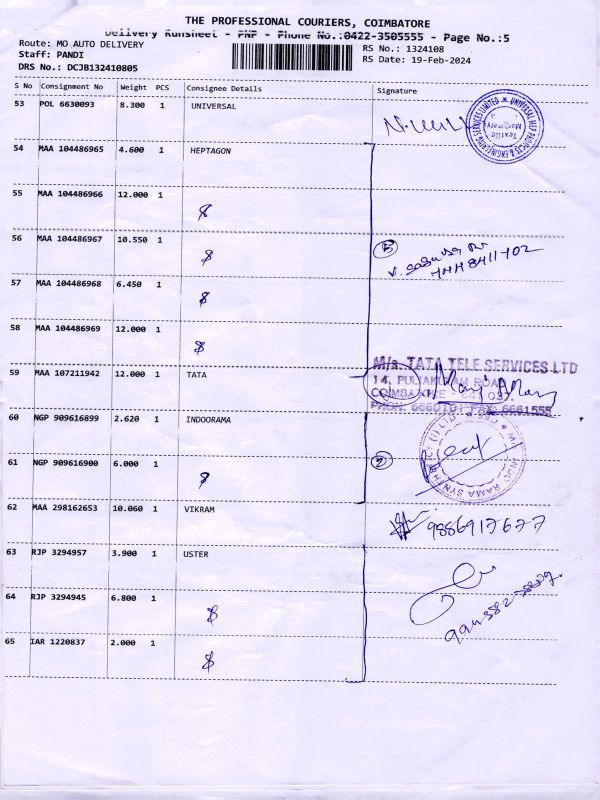 THE PROFESSIONAL COURIERS, COIMBATORE
Delivery Runsheet - PNP - Phone No.:0422-3505555 - Page No.:5
Route: MO AUTO DELIVERY
RS No.: 1324108
Staff: PANDI
RS Date: 19-Feb-2024
DRS No.: DCJB132410805
S No Consignment No Weight PCS Consignee Details Signature
53 POL 6630093 8.300 1 UNIVERSAL
54 MAA 104486965 4.600 1 HEPTAGON
55 MAA 104486966 12.000 1
56 MAA 104486967 10.550 1
5
57 MAA 104486968 6.450 1
58 MAA 104486969 12.000 1
M/s. TATA TELE SERVICES LTD
59 MAA 107211942 12.000 1 TATA
60 NGP 909616899 2.620 1 INDOORAMA
61 NGP 909616900 6.000 1
2
62 MAA 298162653 10.060 1 VIKRAM
9886917677
63 RJP 3294957 3.900 1 USTER
64 RJP 3294945 6.800 1
65 IAR 1220837 2.000 1